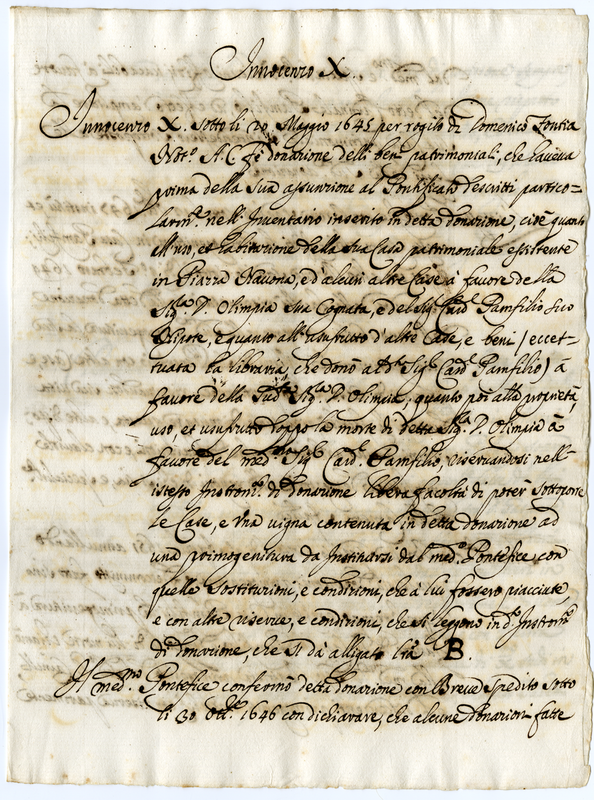 Innocenzo X.
Innocenzo X. sotto li 20 Maggio 1645 per rogito di Domenico Fontia
Not.o A.C. fè donazione delli beni patrimoniali, che haveva
prima della sua assunzione al Pontificato descritti partico=
larm.te nell'Inventario inserito in detta donazione, cioè quanto
all'uso, et habitazione della sua Casa patrimoniale esistente
in Piazza Navona, e d'alcuni altre Case à favore della
Sig.ra D. Olimpia sua Cognata, e del Sig.r Card.l Pamfilio suo
Nipote, e quanto all'usufrutto d'altre Case, e beni (eccet=
tuata la libraria, che donò a d.o Sig.r Card.l Pamfilio) à
favore della sud.ta Sig.ra D. Olimpia; quanto poi alla proprietà,
uso, et usufrutto doppo la morte di detta Sig.ra D. Olimpia à
favore del med.mo Sig.r Card.l Pamfilio, riservandosi nell'=
istesso Instrom.to di donazione libera facoltà di poter sottoporre
le Case, e una vigna contenuta in detta donazione ad
una primogenitura da instituirsi dal med.o Pontefice con
quelle sostituzioni, e condizioni, che à lui fossero piaciute,
e con altre riserve, e condizioni, che si leggono in d.o Instrom.to
di donazione, che si dà alligato l.ra B.
Il med.mo Pontefice confermò detta donazione con Breve spedito sotto
li 30 Ott.e 1646 con dichiarare, che alcune donazioni fatte